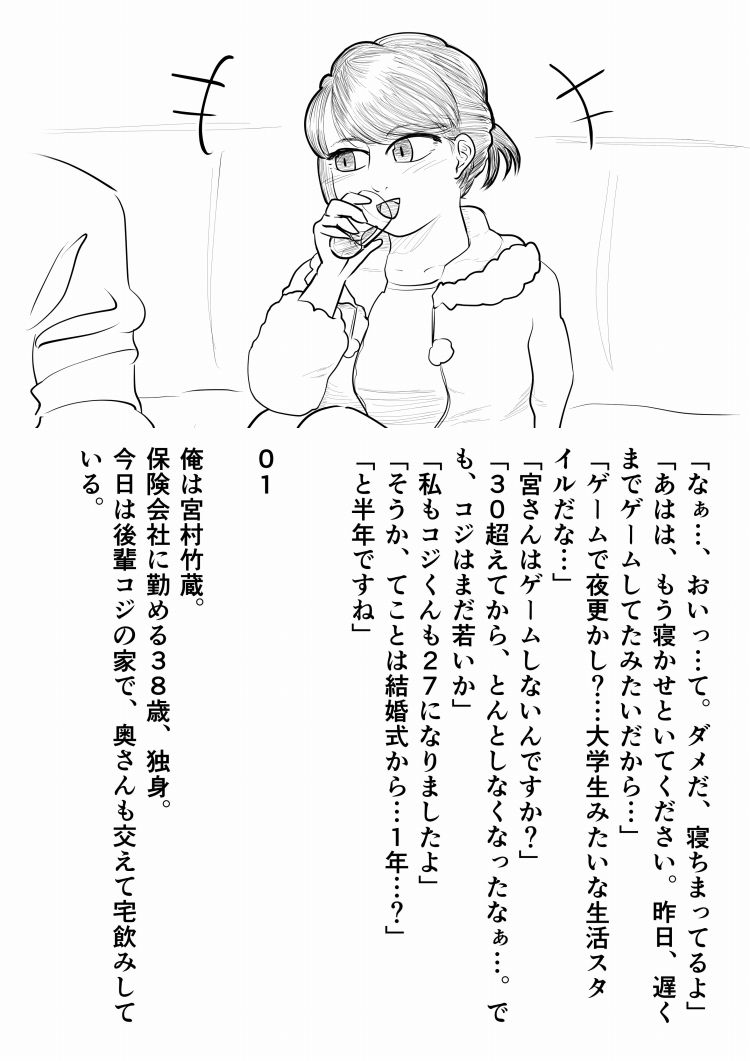 「なぁ…、おいっ…て。ダメだ、寝ちまってるよ」
「あはは、もう寝かせといてください。昨日、遅く
までゲームしてたみたいだから…」
「ゲームで夜更かし?…大学生みたいな生活スタ
イルだな…」
「宮さんはゲームしないんですか?」
「30超えてから、とんとしなくなったなぁ…。で
も、コジはまだ若いか」
「私もコジくんも27になりましたよ」
「そうか、てことは結婚式から…1年…?」
「と半年ですね」
01
俺は宮村竹蔵。
保険会社に勤める38歳、独身。
今日は後輩コジの家で、奥さんも交えて宅飲みして
いる。